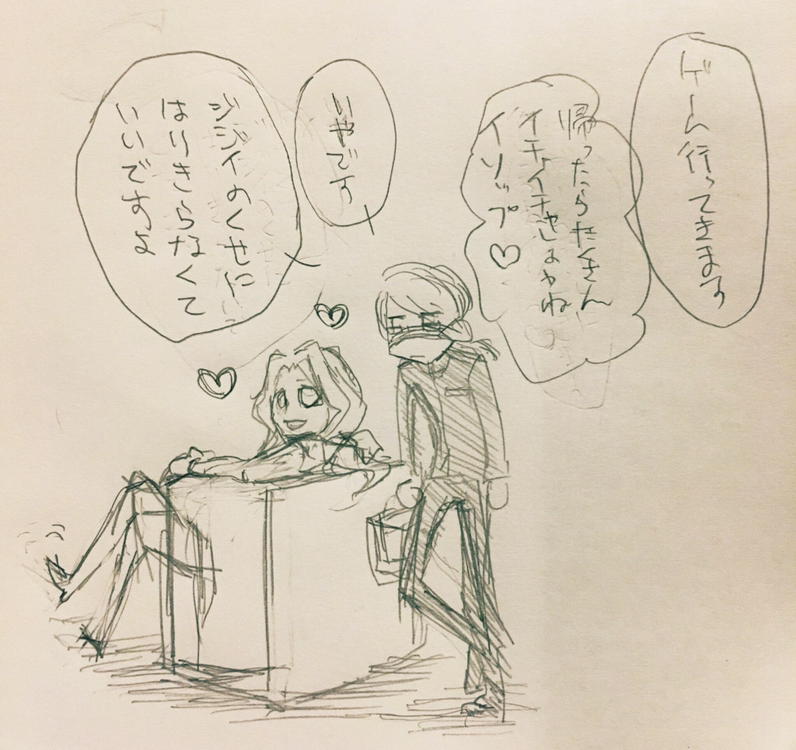 ゲーム行ってきます
帰ったらたくさん
イチャイチャしようね
イソップ♡
いやです
ジジイのくせに
はりきらなくて
いいですよ